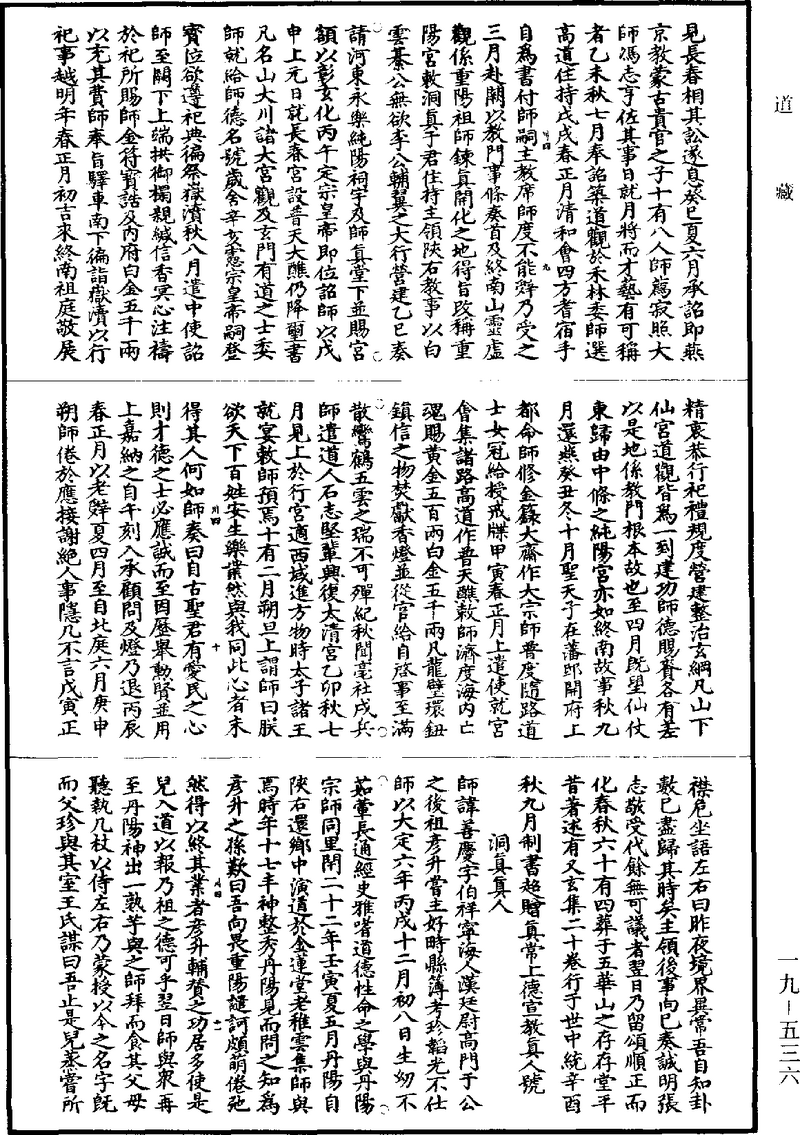 道藏
見長春相其訟遂息癸巳夏六月承詔即燕
京教蒙古貴官之子十有八人師薦寂照大
師馮志亨佐其事日就月將而才藝有可稱
者乙未秋七月奉詔築道觀於禾林委師選
高道住持戊戌春正月清和會四方耆宿手
自為書付師嗣主教席師度不能辭乃受之
三月赴闕以教門事條奏首及終南山靈虛
觀係重陽祖師鍊真開化之地得旨改稱重
陽宮敕洞真于君住持主領陝右教事以白
雲綦公無欲李公輔翼之大行營建乙巳奏
請河東永樂純陽祠宇及師真堂下並賜宮
額以彰玄化丙午定宗皇帝即位詔師以戊
申上元日就長春宮設普天大醮仍降璽書
凡名山大川諸大宮觀及玄門有道之士委
師就給師德名號歲舍辛亥憲宗皇帝嗣登
寶位欲遵祀典徧祭嶽瀆秋八月遣中使詔
師至闕下上端拱御榻親緘信香冥心注禱
於祀所賜師金符寶誥及內府白金五千兩
以充其費師奉旨驛車南下徧詣嶽瀆以行
祀事越明年春正月初吉來終南祖庭敬展
精衷恭行祀禮規度營建整治玄綱凡山下
仙宮道觀皆為一到建功師德賜賚各有差
以是地係教門根本故也至四月既望仙仗
東歸由中條之純陽宮亦如終南故事秋九
月還燕癸丑冬十月聖天子在藩邸開府上
都命師修金籙大齋作大宗師普度隨路道
士女冠給授戒牒甲寅春正月上遣使就宮
會集諸路高道作普天醮敕師濟度海內亡
魂賜黃金五百兩白金五千兩凡龍璧環鈕
鎮信之物焚獻香燈並從官給自啓事至滿
散鸞鶴五雲之瑞不可殫紀秋聞亳社戍兵
師遣道人石志堅輩興復太清宮乙卯秋七
月見上於行宮適西域進方物時太子諸王
就宴敕師預焉十有二月朔旦上謂師曰朕
欲天下百姓安生樂業然與我同此心者未
得其人何如師奏曰自古聖君有愛民之心
則才德之士必應誠而至因歷舉勳賢並用
上嘉納之自午刻入承顧問及燈乃退丙辰
春正月以老辭夏四月至自北庭六月庚申
朔師倦於應接謝絕人事隱几不言戊寅正
襟危坐語左右曰昨夜境界異常吾自知卦
數已盡歸其時矣主領後事向已奏誠明張
志敬受代餘無可議者翌日乃留頌順正而
化春秋六十有四葬于五華山之存存堂平
昔著述有又玄集二十卷行于世中統辛酉
秋九月制書超贈真常上德宣教真人號
洞真真人
師諱善慶字伯祥寧海人漢廷尉高門于公
之後祖彥升嘗主好畤縣簿考珍韜光不仕
師以大定六年丙戌十二月初八日生幼不
茹葷長通經史雅嗜道德性命之學與丹陽
宗師同里閈二十二年壬寅夏五月丹陽自
陝右還鄉中演道於金蓮堂老稚雲集師與
焉時年十七丰神整秀丹陽見而問之知為
彥升之孫歎曰吾向畏重陽譴訶頗萌倦弛
然得以終其業者彥升輔贊之功居多使是
兒入道以報乃祖之德可乎翌日師與眾再
至丹陽神出一熟芋與之師拜而食其父母
聽執几杖以侍左右乃蒙授以今之名字既
而父珍與其室王氏謀曰吾止是兒蒸嘗所
一九－五三六